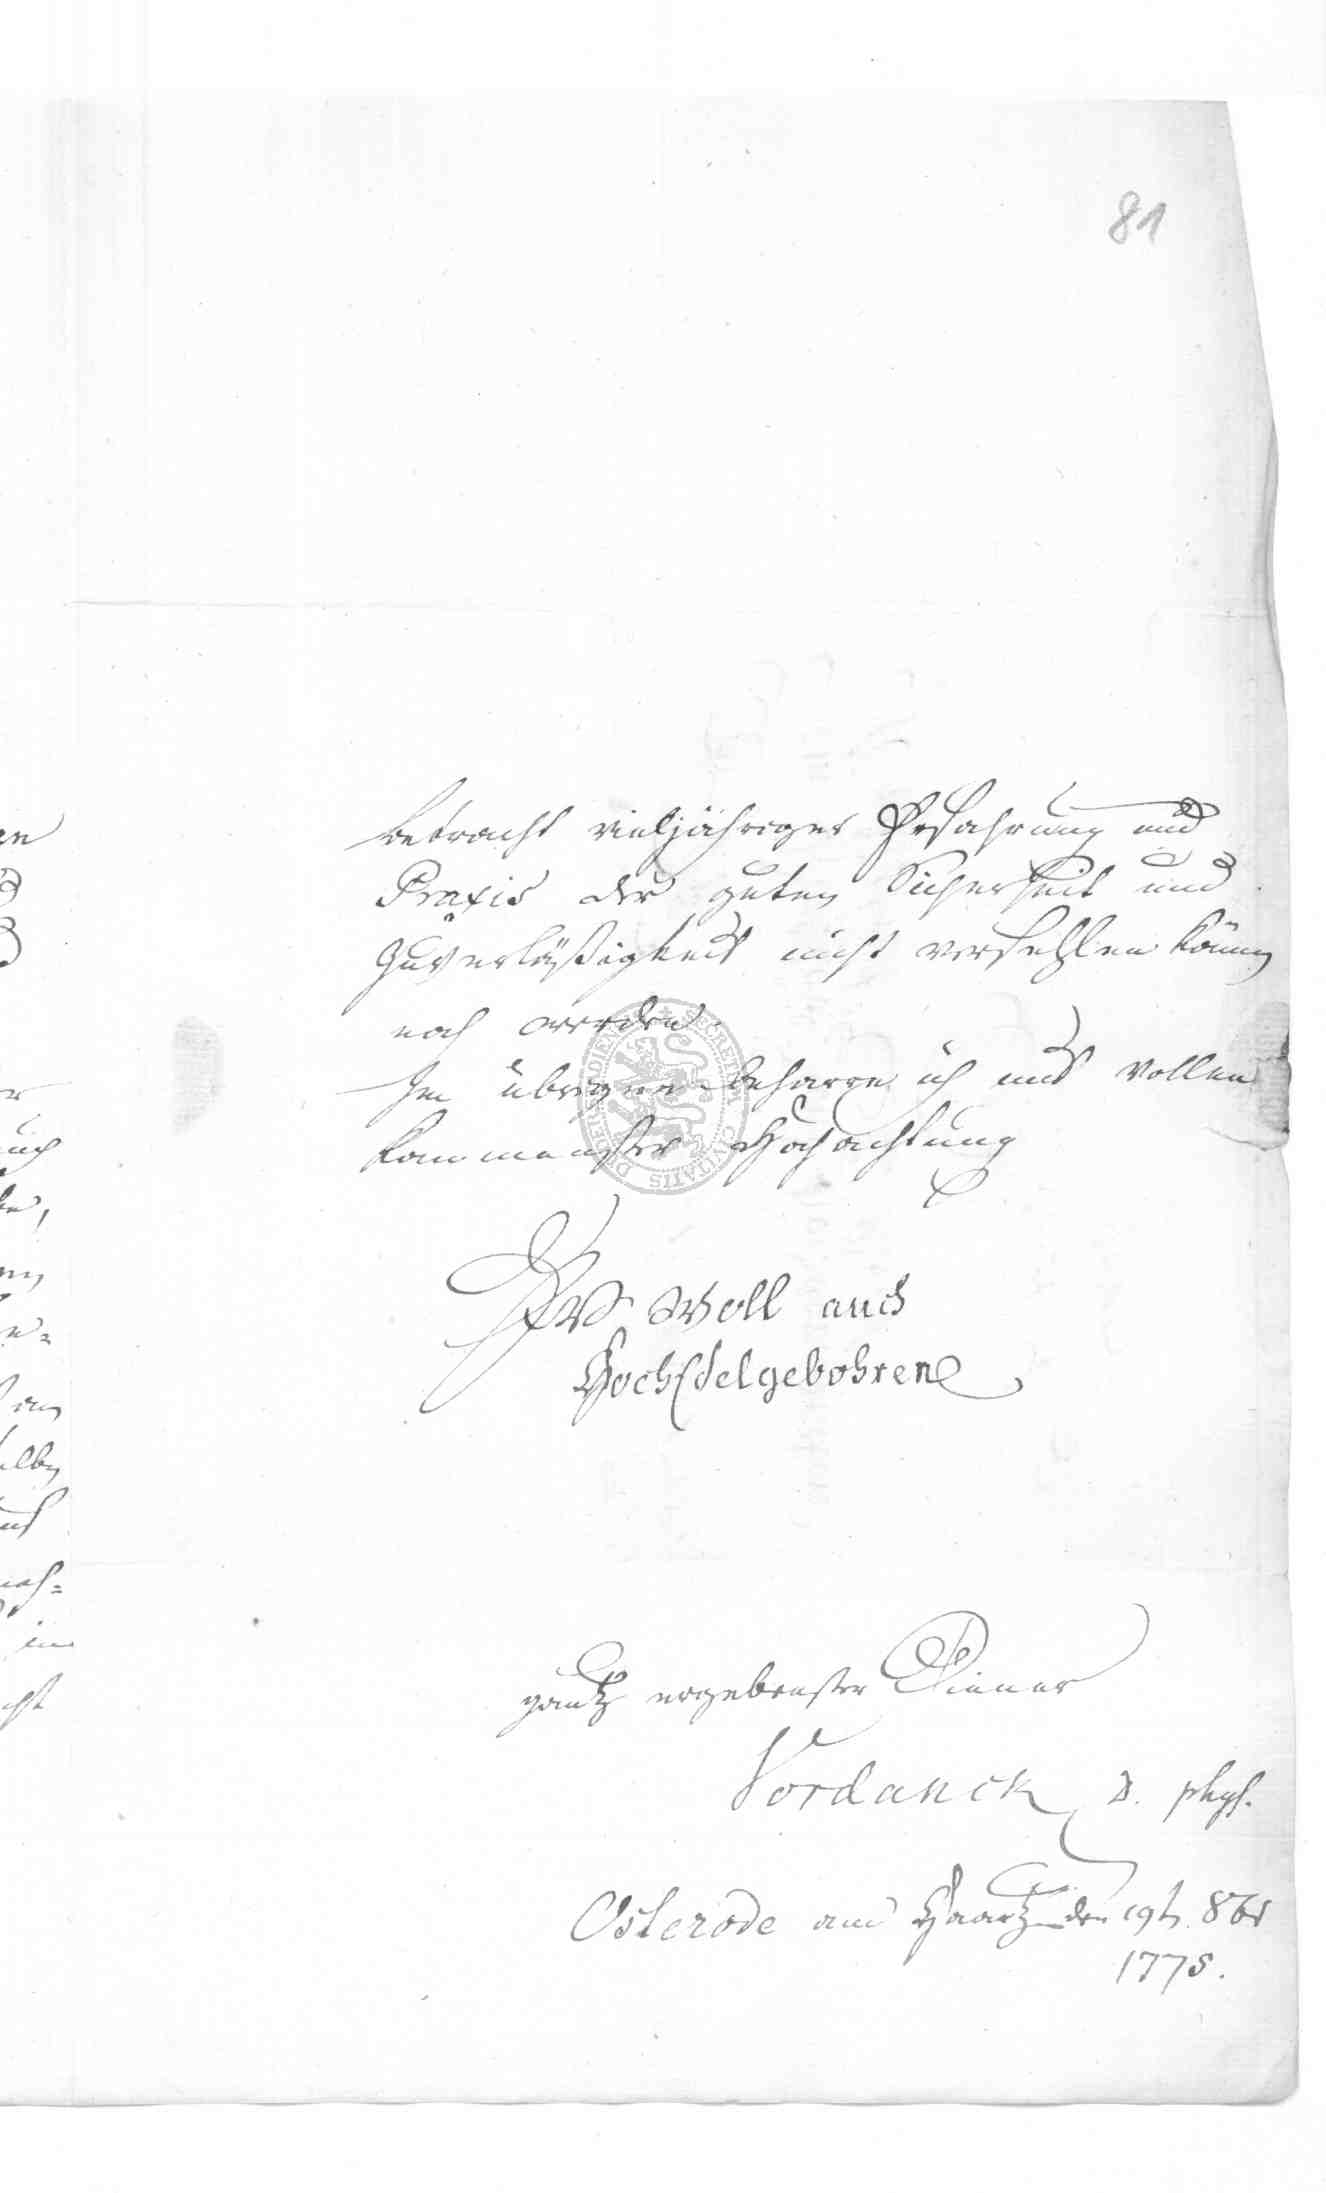 81
betracht vieljähriger Erfahrung und
Praxis der guten Sicherheit und
Zuverläßigkeit nicht verfehlen können
noch werden.
Im übrigen beharre ich mit vollen
kommenster Hochachtung
Ew Woll auch
HochEdelgebohren
gantz ergebenster Diener
Vordanck D. phys.
Osterode am Haartz den 19t. 8br
1775.